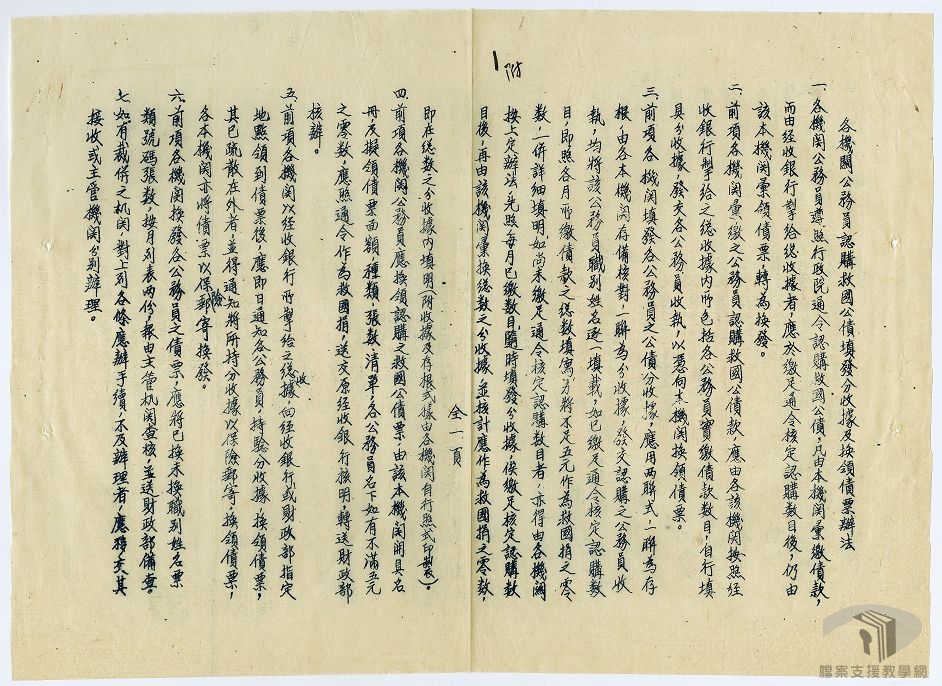 各機關公務員認購救國公債填發分收據及換領債票辦法
一、各機關公務員遵照行政院通令認購救國公債，凡由本機關彙繳債款，
而由經收銀行掣給總收據者，應於繳足通令核定認購數目後，仍由
該本機關彙領債票轉為換發。
二、前項各機關彙繳之公務員認購救國公債款，應由各該機關按照經
收銀行掣給之總收據內所包括各公務員實繳債款數目，自行填
具分收據，發交各公務員收執，以憑向本機關換領債票。
三、前項各機關填發各公務員之公債分收據，應用兩聯式，一聯為存
根，由各本機關存備核對，一聯為分收據，發交認購之公務員收
執，均將該公務員職別姓名逐一填載，如已繳足通令核定認購數
目，即照各月所繳債款之總數填寫，並將不足五元作為救國捐之零
數，一併詳細填明，如尚未繳足通令核定認購數目者，亦得由各機關
按上定辦法，先照每月已繳數目隨時填發分收據，俟繳足核定認購數
目後，再由該機關彙換總數之分收據，並核計應作為救國捐之零數，
附
1
全一頁
即在總數之分收據內填明（附收據及存根式樣由各機關自行照式印製）。
四、前項各機關公務員應換領認購之救國公債票，由該本機關開具名
冊，及擬領債票面額，種類，張數清單，各公務員名下如有不滿五元
之零數，應照通令作為救國捐，送交原經收銀行核明，轉送財政部
核辦。
五、前項各機關以經收銀行所掣給之總收據向經收銀行或財政部指定
地點領到債票後，應即日通知各公務員，持驗分收據，換領債票，
其已疏散在外者，並得通知將所持分收據以保險郵寄，換領債票，
各本機關亦將債票以保險郵寄換發。
六、前項各機關換發各公務員之債票，應將已換未換職別姓名票
類號碼張數，按月列表兩份，報由主管机関查核，並送財政部備查。
七、如有裁併之机関，對上列各條應辦手續，不及辦理者，應移交其
接收或主管機関分別辦理。
檔案支援教學網